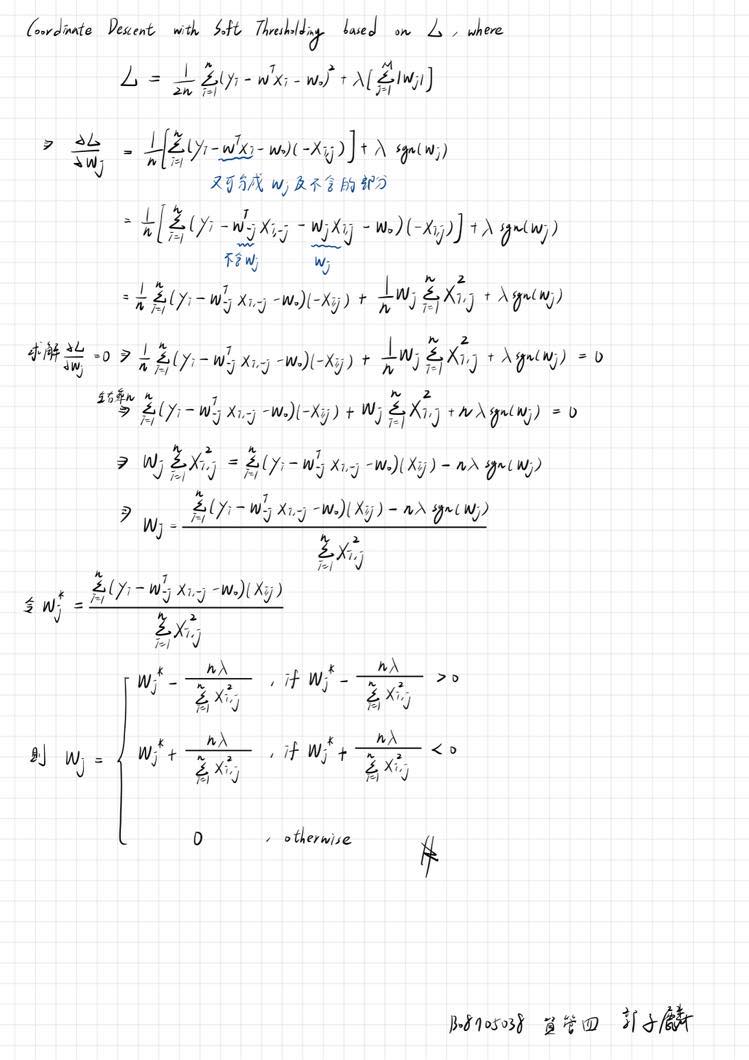 Coordinate Descent with Soft Thresholding based on L, where
L = 1/2n Σ_{i=1}^{n}(y_i - w^T x_i - w_0)^2 + λ[Σ_{j=1}^{M}|w_j|]
⇒ ∂L/∂w_j = 1/n[Σ_{i=1}^{n}(y_i - w^T x_i - w_0)(-x_{i,j})] + λ sgn(w_j)
又可分成 w_j 及不含的部分
= 1/n[Σ_{i=1}^{n}(y_i - w_{-j}^T x_{i,-j} - w_j x_{i,j} - w_0)(-x_{i,j})] + λ sgn(w_j)
不含w_j w_j
= 1/n Σ_{i=1}^{n}(y_i - w_{-j}^T x_{i,-j} - w_0)(-x_{ij}) + 1/n w_j Σ_{i=1}^{n} x_{i,j}^2 + λ sgn(w_j)
求解 ∂L/∂w_j = 0 ⇒ 1/n Σ_{i=1}^{n}(y_i - w_{-j}^T x_{i,-j} - w_0)(-x_{ij}) + 1/n w_j Σ_{i=1}^{n} x_{i,j}^2 + λ sgn(w_j) = 0
⇒ Σ_{i=1}^{n}(y_i - w_{-j}^T x_{i,-j} - w_0)(-x_{ij}) + w_j Σ_{i=1}^{n} x_{i,j}^2 + nλ sgn(w_j) = 0
⇒ w_j Σ_{i=1}^{n} x_{i,j}^2 = Σ_{i=1}^{n}(y_i - w_{-j}^T x_{i,-j} - w_0)(x_{ij}) - nλ sgn(w_j)
⇒ w_j = (Σ_{i=1}^{n}(y_i - w_{-j}^T x_{i,-j} - w_0)(x_{ij}) - nλ sgn(w_j)) / Σ_{i=1}^{n} x_{i,j}^2
令 w_j^* = Σ_{i=1}^{n}(y_i - w_{-j}^T x_{i,-j} - w_0)(x_{ij}) / Σ_{i=1}^{n} x_{i,j}^2
則 w_j = { w_j^* - nλ / Σ_{i=1}^{n} x_{i,j}^2 , if w_j^* - nλ / Σ_{i=1}^{n} x_{i,j}^2 > 0
w_j^* + nλ / Σ_{i=1}^{n} x_{i,j}^2 , if w_j^* + nλ / Σ_{i=1}^{n} x_{i,j}^2 < 0
0 , otherwise #
B08705038 資管四 郭子麟